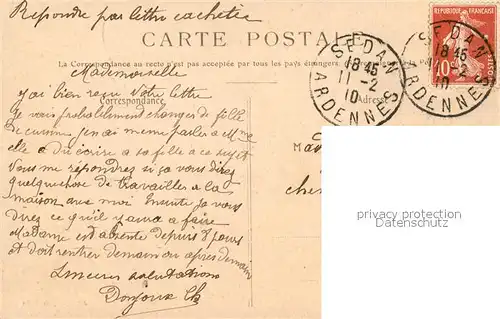 Repondre par lettre cachetée
CARTE POSTALE
La Correspondance au recto n'est pas acceptée par tous les pays étrangers
REPUBLIQUE FRANÇAISE
10
POSTES
SEDAN
18 45
11-2
10
ARDENNES
SEDAN
18 45
11-2
10
ARDENNES
Mademoiselle
Correspondance
Adresse
j'ai bien reçu Votre lettre
Je vais probablement changer de fille
de cuisine j'en ai meme parlé a Mme
elle a du écrire a sa fille a ce sujet
Vous me répondrez si ça vous direz
quelque chose de travailler a la
maison avec moi Ensuite je vous
direz ce qu'il y aura a faire
Madame est absente depuis 8 jours
et doit rentrer demain ou après demain
Sinceres salutations
privacy protection
Datenschutz